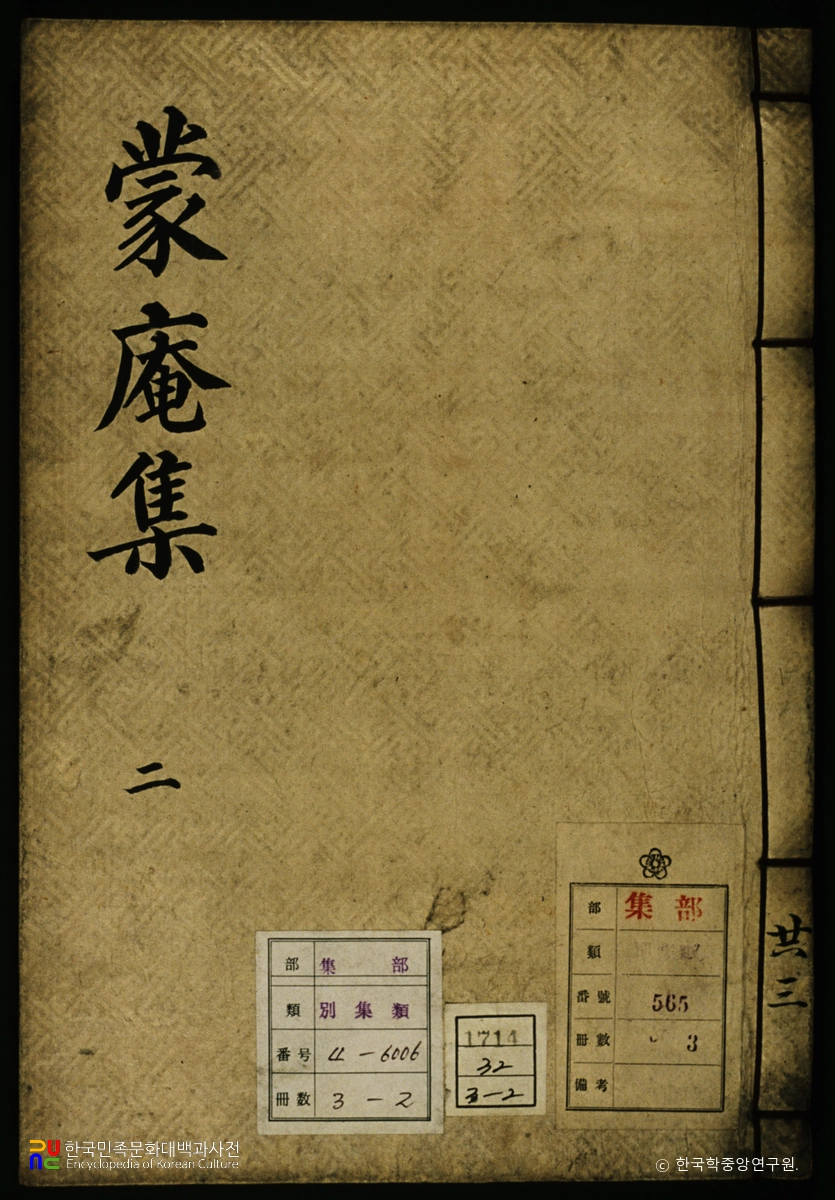 蒙庵集
二
共三
部 集部
類
番號 565
冊數 3
備考
部 集部
類 別集類
番号 4-6006
冊数 3-2
1714
32
3-2
한국민족문화대백과사전
Encyclopedia of Korean Culture
© 한국학중앙연구원.